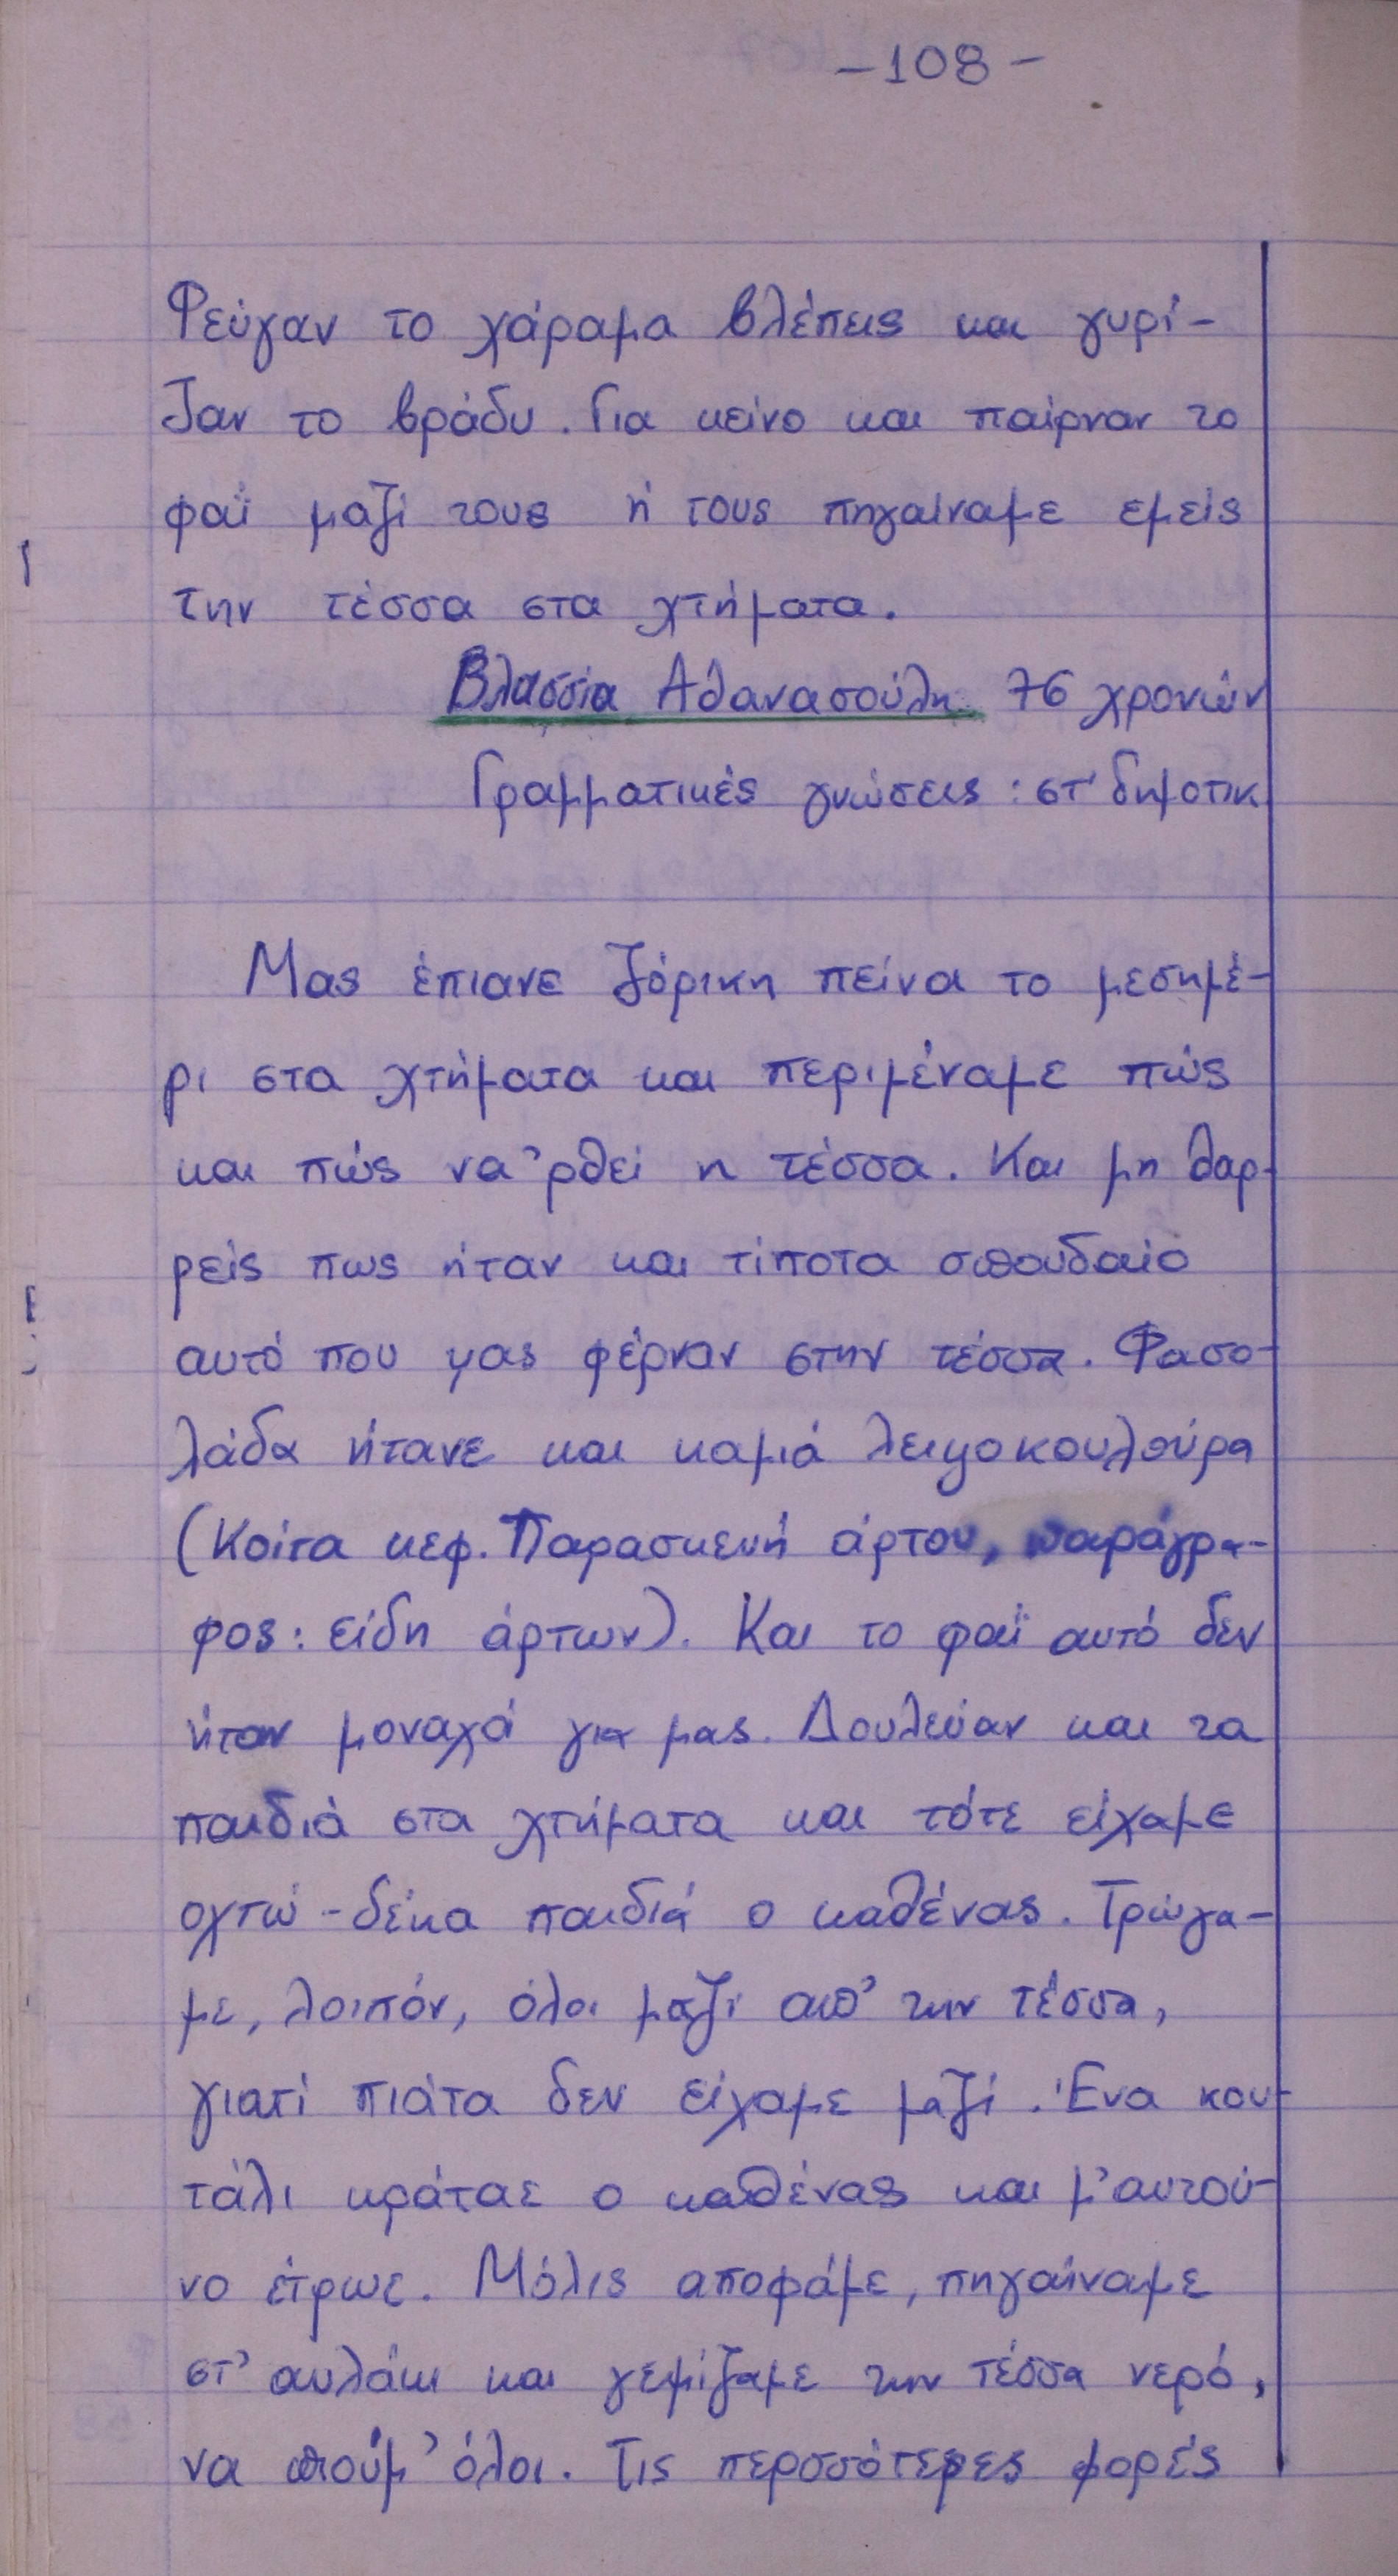 -108-
Φεύγαν το χάραμα βλέπεις και γυρί-
ζαν το βράδυ. Για κείνο και παίρναν το
φαΐ μαζί τους ή τους πηγαίναμε εμείς
την τέσσα στα χτήματα.
Βλασσία Αθανασούλη 76 χρονών
Γραμματικές γνώσεις: στ' δημοτικ
Μας έπιανε ζόρικη πείνα το μεσημέ-
ρι στα χτήματα και περιμέναμε πώς
και πώς να 'ρθεί η τέσσα. Και μη θαρ-
ρείς πως ήταν και τίποτα σπουδαίο
αυτό που μας φέρναν στην τέσσα. Φασο-
λάδα ήτανε και καμιά λειψοκουλούρα
(Κοίτα κεφ. Παρασκευή άρτου, παράγρα-
φος: είδη άρτων). Και το φαΐ αυτό δεν
ήταν μοναχά για μας. Δουλεύαν και τα
παιδιά στα χτήματα και τότε είχαμε
οχτώ-δέκα παιδιά ο καθένας. Τρώγα-
με, λοιπόν, όλοι μαζί απ' την τέσσα,
γιατί πιάτα δεν είχαμε μαζί. Ένα κου-
τάλι κράταε ο καθένας και μ' αυτού-
νο έτρωε. Μόλις αποφάμε, πηγαίναμε
στ' αυλάκι και γεμίζαμε την τέσσα νερό,
να πιούμ' όλοι. Τις περσσότερες φορές